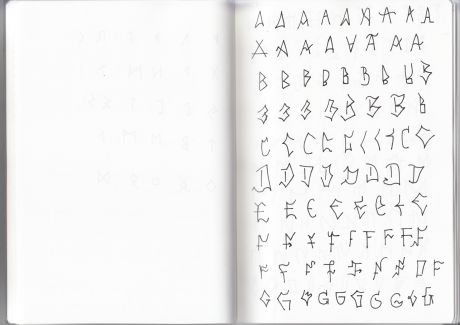 A A A A A A A A A
A A A A A A A A
B B B B B B B B B
B B B B B B B B
C C C C C C C C C C
D D D D D D D D
E E E E E E E E
F F F F F F F F F
F F F F F F F F F
G G G G G G G G G